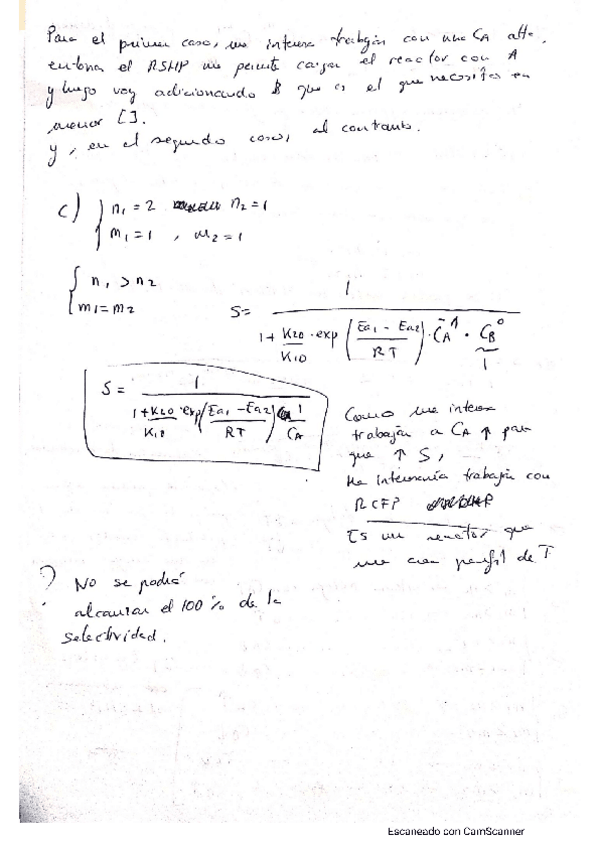 Para el primer caso, me interesa trabajar con una CA alta.
entonces el RSHP me permite cargar el reactor con A
y luego voy adicionando B que es el que necesitas en
menor [].
y, en el segundo caso, al contrario.
c) { n1 = 2 n2 = 1
m1 = 1 , m2 = 1
{ n1 > n2
m1 = m2
S = 1 / (1 + K20/K10 · exp((Ea1 - Ea2)/RT) · CA^-1 · CB^0)
1
S = 1 / (1 + K20/K10 · exp((Ea1 - Ea2)/RT) 1/CA)
Como me interesa
trabajar a CA ↑ para
que ↑ S,
Me interesaría trabajar con
RCFP
Es un reactor que
me crea perfil de T
? No se podrá
alcanzar el 100% de la
selectividad.
Escaneado con CamScanner